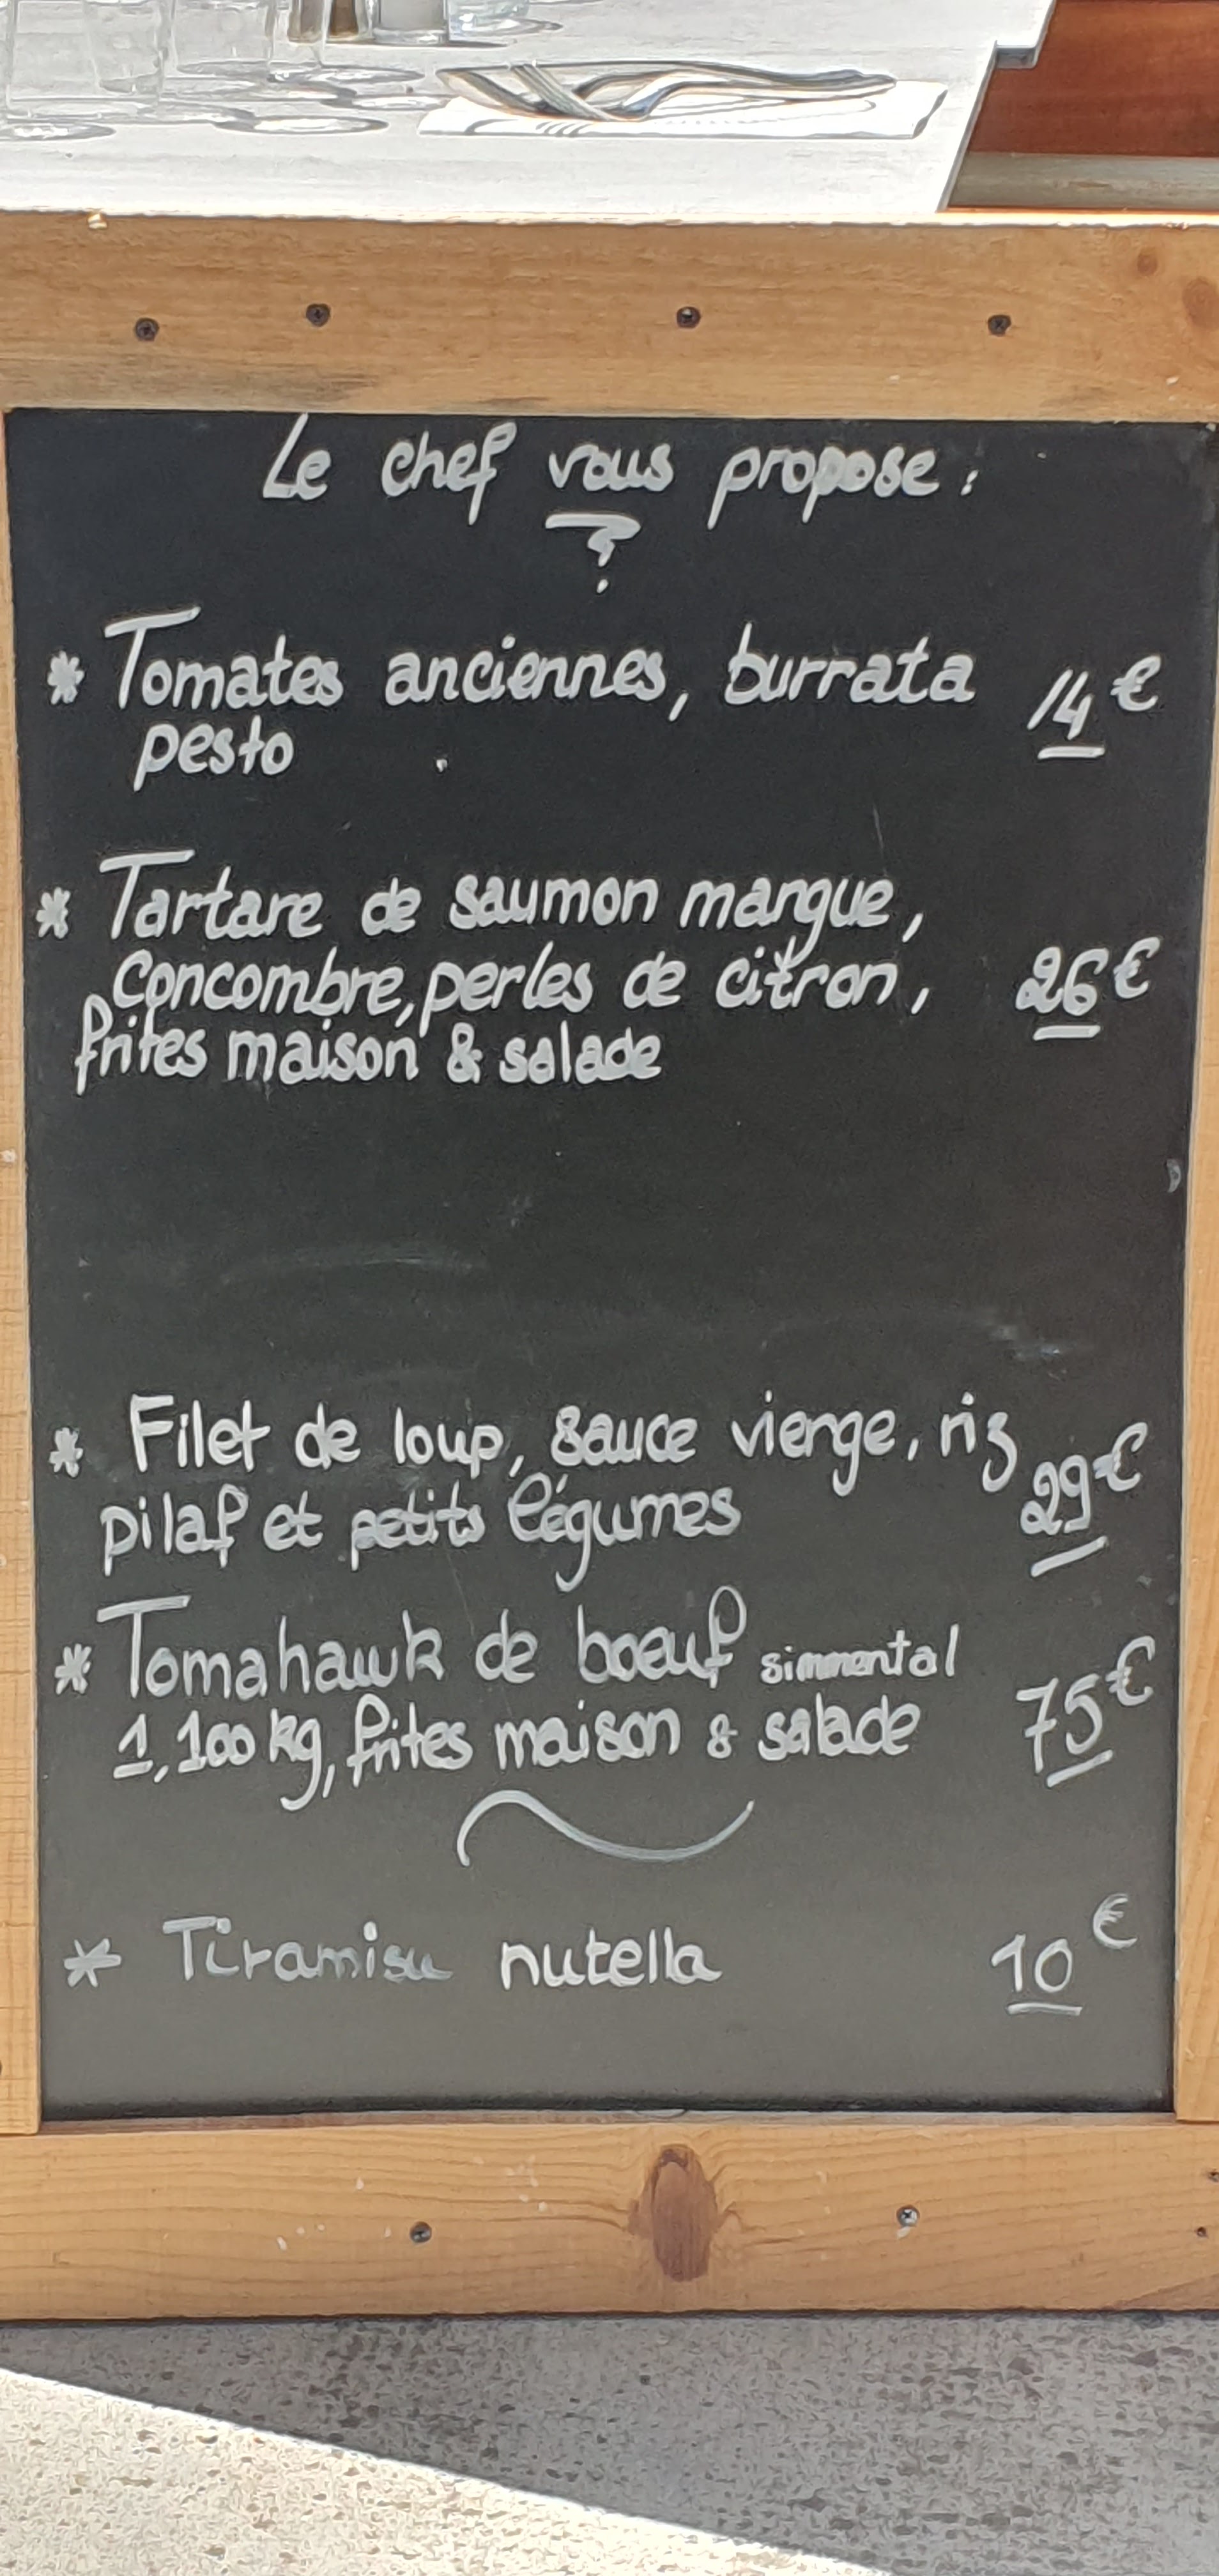 Le chef vous propose :
* Tomates anciennes, burrata 14€
pesto
* Tartare de saumon mangue,
concombre, perles de citron, 26€
frites maison & salade
* Filet de loup, sauce vierge, riz
pilaf et petits légumes 29€
* Tomahawk de boeuf simmental
1,100 kg, frites maison & salade 75€
* Tiramisu nutella 10€